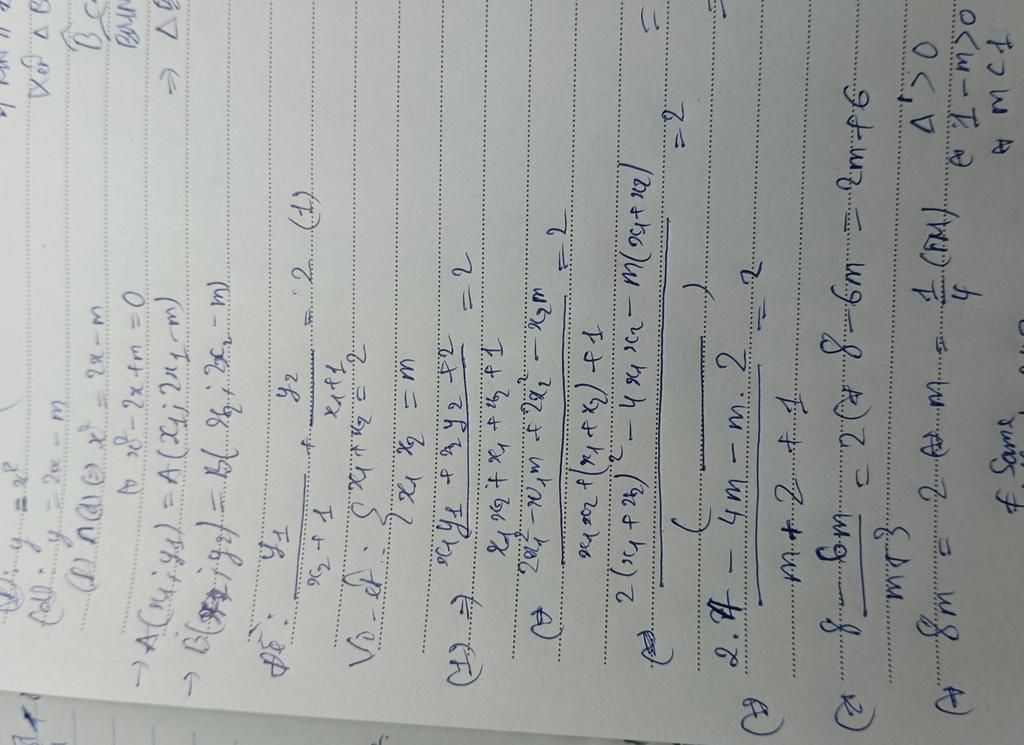 (P): y = x²
(d): y = 2x - m
(P) ∩ (d) ⇔ x² = 2x - m
⇔ x² - 2x + m = 0
→ A(x₁; y₁) = A(x₁; 2x₁ - m)
→ B(x₂; y₂) = B(x₂; 2x₂ - m)
Để: y₁/(x₂ + 1) + y₂/(x₁ + 1) = 2 (1)
Vi - ét: { x₁ + x₂ = 2
{ x₁ x₂ = m
(1) ⇒ (x₁y₁ + x₂y₂ + 2)/(x₁x₂ + x₁ + x₂ + 1) = 2
⇔ (2x₁² - x₁m + 2x₂² - x₂m)/(x₁x₂ + (x₁ + x₂) + 1) = 2
⇔ (2(x₁ + x₂)² - 4x₁x₂ - m(x₁ + x₂))/( ) = 2
⇔ (2.4 - 4m - m.2)/(m + 2 + 1) = 2
⇔ (8 - 6m)/(m + 3) = 2 ⇔ 8 - 6m = 2m + 6
⇔ 8m = 2 ⇔ m = 1/4 (TM)
Δ' > 0
⇔ 1 - m > 0
⇔ m < 1